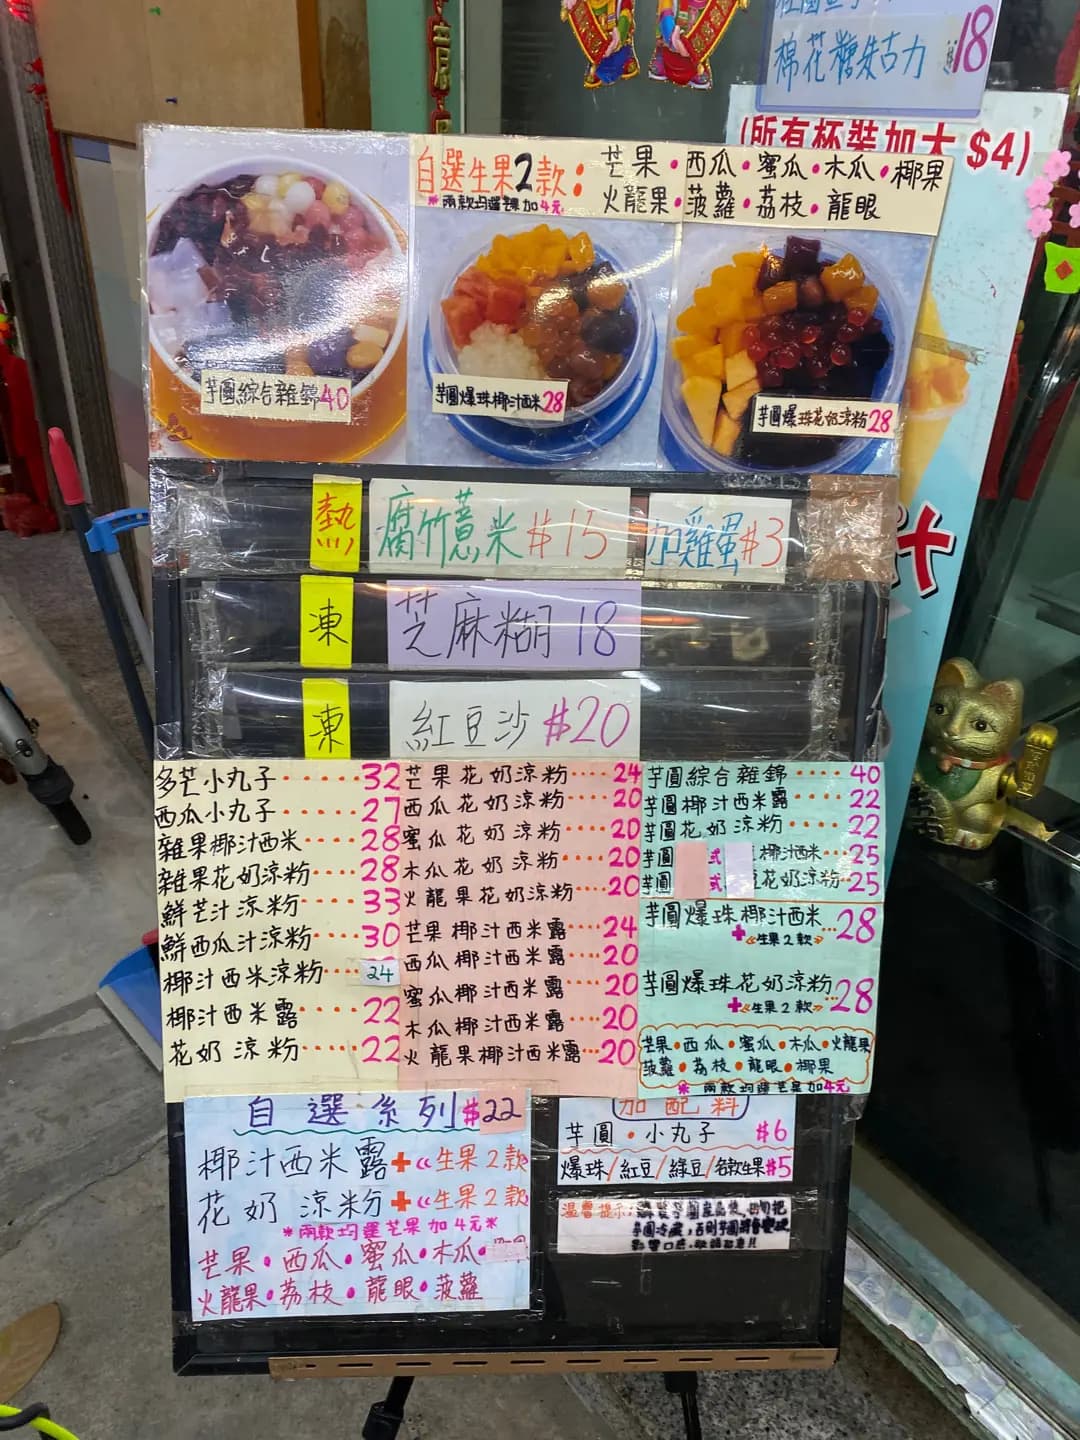 棉花糖朱古力 18
(所有杯裝加大 $4)
自選生果2款:
*兩款均選芒果加4元
芒果・西瓜・蜜瓜・木瓜・椰果
火龍果・菠蘿・荔枝・龍眼
芋圓綜合雜錦40
芋圓爆珠椰汁西米28
芋圓爆珠花奶涼粉28
熱 腐竹薏米 $15 加雞蛋$3
凍 芝麻糊 18
凍 紅豆沙 $20
多芒小丸子・・・・・32
西瓜小丸子・・・・・27
雜果椰汁西米・・・・28
雜果花奶涼粉・・・・28
鮮芒汁涼粉・・・・33
鮮西瓜汁涼粉・・・・30
椰汁西米涼粉・・・・24
椰汁西米露・・・・22
花奶涼粉・・・・22
芒果花奶涼粉・・・・24
西瓜花奶涼粉・・・・20
蜜瓜花奶涼粉・・・・20
木瓜花奶涼粉・・・・20
火龍果花奶涼粉・・・20
芒果椰汁西米露・・・24
西瓜椰汁西米露・・・20
蜜瓜椰汁西米露・・・20
木瓜椰汁西米露・・・20
火龍果椰汁西米露・・・20
芋圓綜合雜錦・・・・・40
芋圓椰汁西米露・・・・22
芋圓花奶涼粉・・・・22
芋圓 或 豆椰汁西米・・・25
芋圓 或 豆花奶涼粉・・25
芋圓爆珠椰汁西米・・28
+《生果2款》
芋圓爆珠花奶涼粉・・28
+《生果2款》
芒果・西瓜・蜜瓜・木瓜・火龍果
菠蘿・荔枝・龍眼・椰果
*兩款均選芒果加4元
自選系列$22
椰汁西米露+《生果2款
花奶涼粉+《生果2款
*兩款均選芒果加4元*
芒果・西瓜・蜜瓜・木瓜・
火龍果・荔枝・龍眼・菠蘿
加配料
芋圓・小丸子 $6
爆珠/紅豆/綠豆/各款生果$5
溫馨提示: